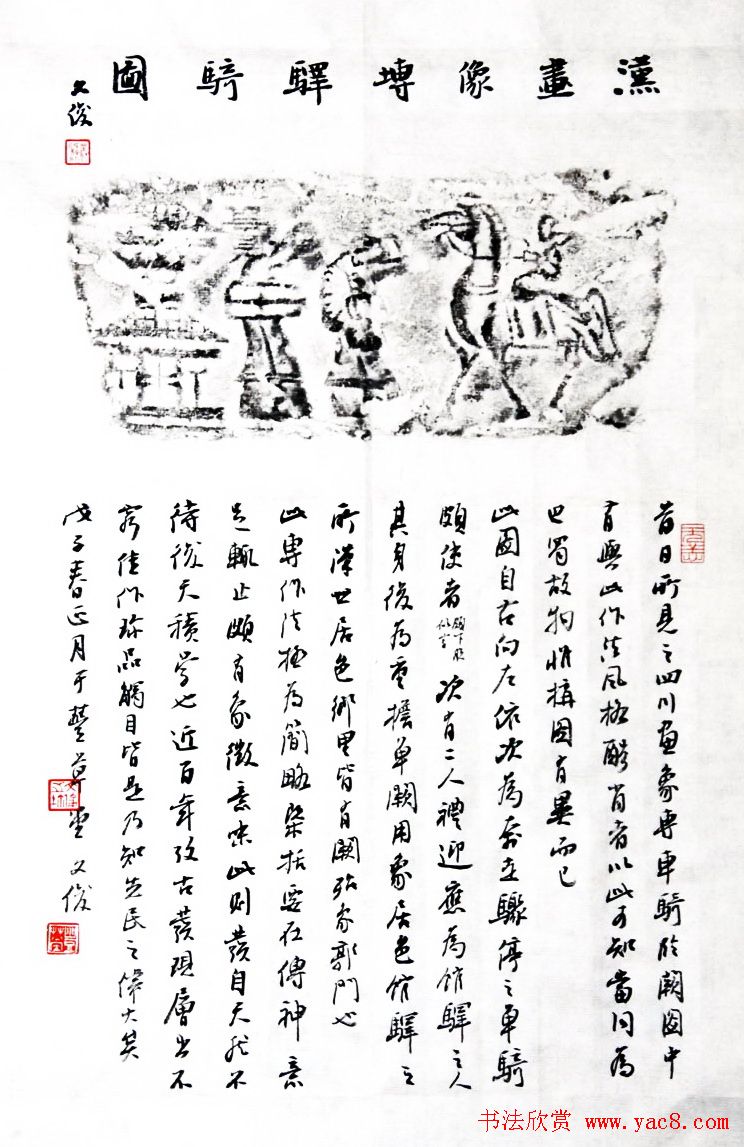 漢畫像塼驛騎圖
文俊
昔日所見之四川畫象專車騎臨闕圖中
有與此作法風格酷肖者以此可知當同為
巴蜀故物惟構圖有異而已
此圖自右向左依次為奔立驟停之單騎
頗使者 次有二人禮迎應為館驛之人
其身後為重擔單闕用象居邑館驛之
所漢世居邑鄉里皆有闕 郭門也
此專作法極為簡略檃括要在傳神意
足輒止頗有象徵意味此則發自天然不
待後天積學也近百年考古發現層出不
窮佳作珍品觸目皆是乃知先民之偉大矣
戊子春正月于 草堂文俊
书法欣赏 www.yac8.com